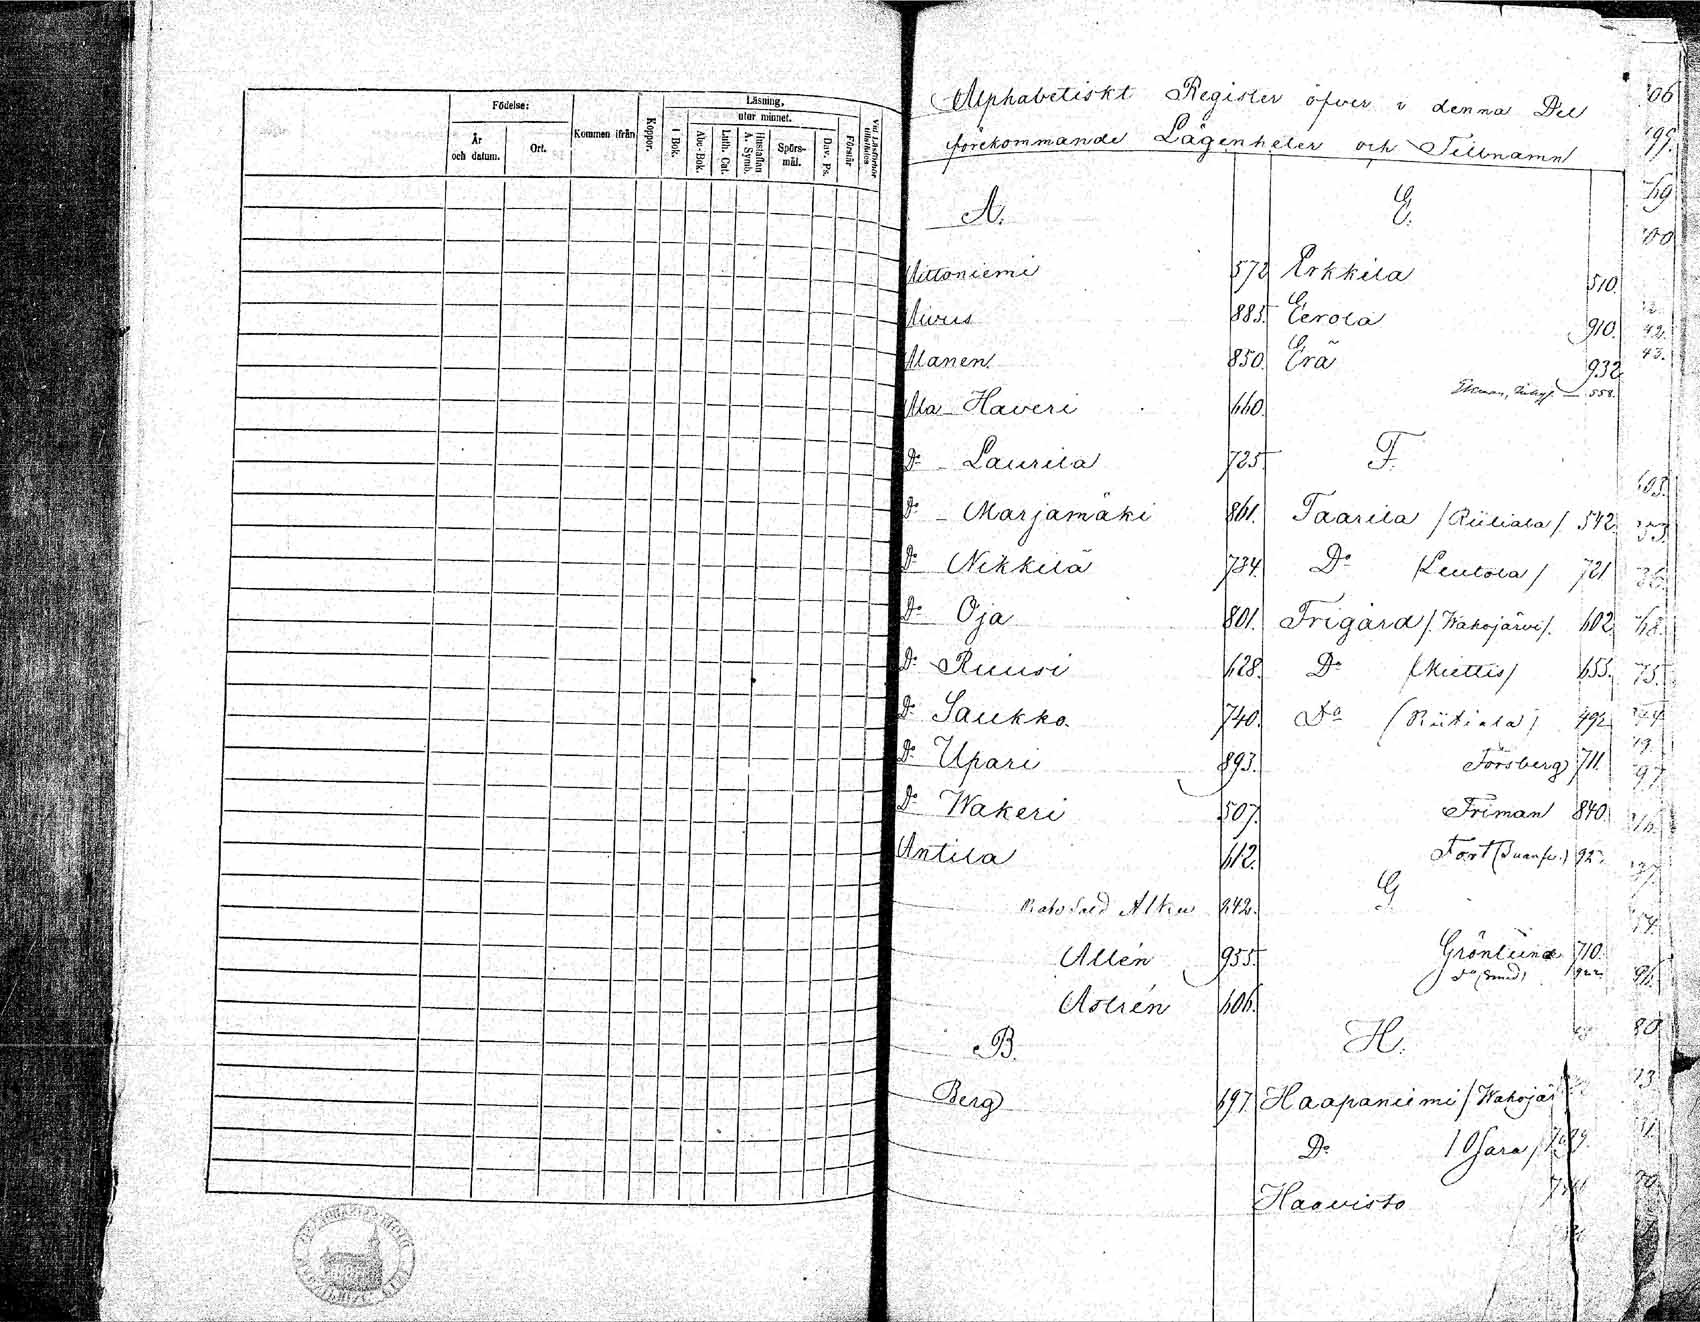 Födelse:
År
och datum.
Ort.
Kommen ifrån
Koppor.
Läsning,
utur minnet.
I Bok.
Abc-Bok.
Luth. Cat.
Hustaflan
A. Symb.
Spörs-
mål.
Dav. Ps.
Förstår
Alphabetiskt Register öfver i denna Del
förekommande Lägenheter och Tillnamn
A.
Aittoniemi 572
Aivus 885.
Alanen 850.
Ala Haveri 660.
Do Laurila 725.
Do Marjamäki 861.
Do Nikkilä 734.
Do Oja 801.
Do Ruusi 628.
Do Saukko. 740.
Do Upari 893.
Do Wakeri 507.
Antila 612.
Alku 842.
Allén 955.
Astrén 606.
B.
Berg 697.
E.
Erkkila 510.
Eerola 910.
Erä 932
558.
F.
Taarila /Riitiala/ 542
Do /Leutola/ 721
Frigård /Wahojärvi/. 602
Do /Miettis/ 655.
Do (Riitiala) 492
Forsberg 711.
Friman 840.
Fort
G.
Grönlund 710.
Do (Smed) 922
H.
Haapaniemi /Wahojär
Do /Osara/
Haavisto